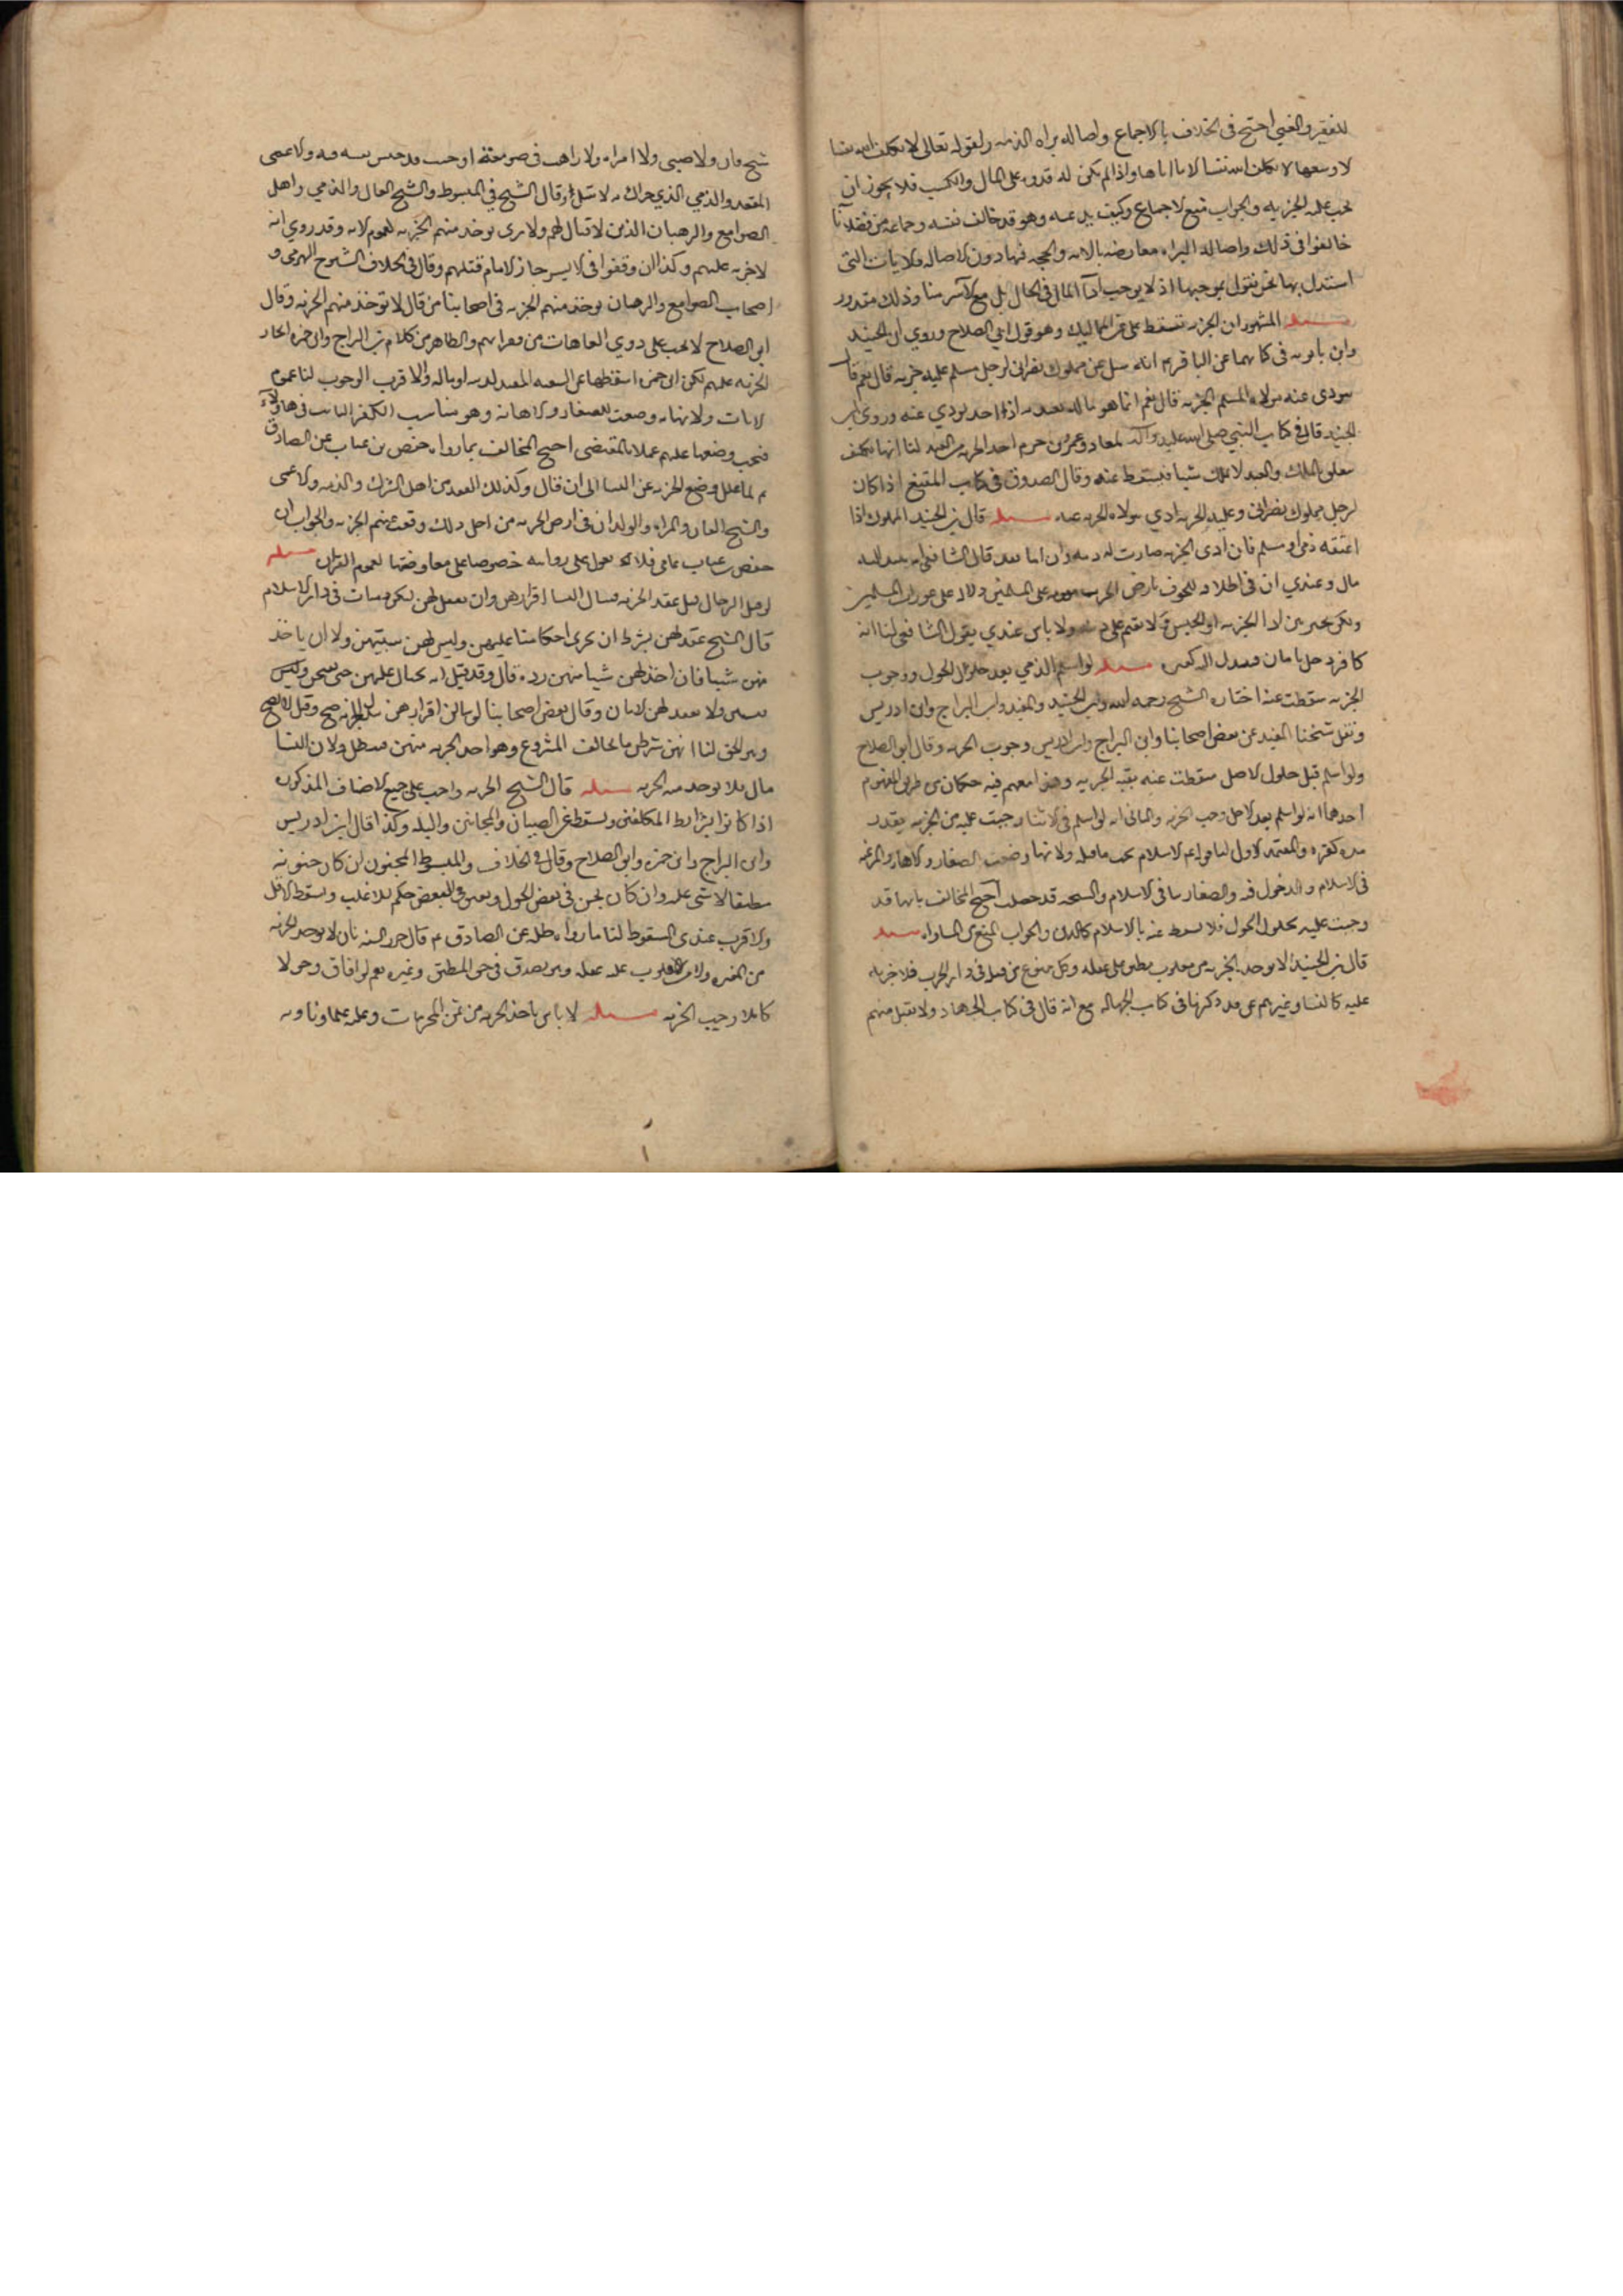 للفقير والغني احتج في الخلاف بالاجماع واصاله براه الذمه ولقوله تعالى لا يكلف الله نفسا
الا وسعها لا يكلف الله نفسا الا ما اتاها واذا لم يكن له قدره على المال والكسب فلا يجوز ان
تجب عليه الجزيه والجواب منع الاجماع وكيف يدعيه وهو قد خالف نفسه وجماعه من فضلائنا
خالفوا في ذلك واصاله البراه معارضه بالايه والحجه فيها دون الاصاله والايات التي
استدل بها نحن نقول بموجبها اذ لا يوجب اداء المال في الحال بل مع الايسر منا وذلك مقدور
مسئله المشهور ان الجزيه تسقط على المماليك وهو قول ابي الصلاح وروي ابن الجنيد
وابن بابويه في كتابيهما عن الباقر م انه سئل عن مملوك نصراني لرجل مسلم عليه جزيه قال نعم قلت
فيودي عنه مولاه المسلم الجزيه قال نعم انما هو ماله يفديه اذا اخذ يودي عنه وروى ابن
الجنيد قال في كتاب النبي صلى الله عليه واله لمعاذ وعمرو بن حزم اخذ الجزيه من العبد لنا انها تكلف
يتعلق بالملك والعبد لا يملك شيا فيسقط عنه وقال الصدوق في كتاب المقنع اذا كان
لرجل مملوك نصراني وعليه الجزيه ادي مولاه الجزيه عنه مسئله قال ابن الجنيد المملوك اذا
اعتقه ذمي او مسلم فان ادى الجزيه صارت له ذمه وان ابا بعد قال الشافعي
مال وعندي ان في اطلاقه للحوق بارض الحرب على المسلمين ودلاله على عورات المسلمين
ولكن يخير بين اداء الجزيه او الحبس ولا يقيم على ولا باس عندي بقول الشافعي لنا انه
كافر دخل بامان مسئله لو اسلم الذمي بعد حلول الحول ووجوب
الجزيه سقطت عنه اختاره الشيخ رحمه الله وابن الجنيد والمفيد وابن البراج وابن ادريس
ونقل شيخنا المفيد عن بعض اصحابنا وابن البراج وابن ادريس وجوب الجزيه وقال ابو الصلاح
ولو اسلم قبل حلول الاجل سقطت عنه بقيه الجزيه وهذا يفهم فيه حكمان من طريق المفهوم
احدهما انه لو اسلم بعد الاجل وجب الجزيه والثاني انه لو اسلم في الاثناء وجبت عليه من الجزيه بقدر
مده كفره والمعتمد الاول لنا قوله م الاسلام يجب ما قبله ولانها وضعت للصغار والاهانه والرغبه
في الاسلام والدخول فيه والصغار ينافي الاسلام والنتيجه قد حصلت احتج المخالف بانها قد
وجبت عليه بحلول الحول فلا يسقط عنه بالاسلام كالدين والجواب المنع من المساواه مسئله
قال ابن الجنيد لا توخذ الجزيه من مغلوب مطبق على عقله وكل ممنوع من قتله في دار الحرب فلا جزيه
عليه كالنساء وغيرهم ممن قد ذكرنا في كتاب الجهاله مع انه قال في كتاب الجهاد ولا تقبل منهم
شيخ فان ولا صبي ولا امراه ولا راهب في صومعته او حيث قد حبس نفسه فيه ولا اعمى
المقعد والذمي الذي حراك به لا تسل وقال الشيخ في المبسوط والشيخ الفان والذمي واهل
الصوامع والرهبان الذين لا قتال لهم ولا راى توخذ منهم الجزيه لعموم الايه وقد روي انه
لا جزيه عليهم وكذا ان وقفوا في الاسر جاز للامام قتلهم وقال في الخلاف الشيوخ الهرمى و
اصحاب الصوامع والرهبان يوخذ منهم الجزيه في اصحابنا من قال لا توخذ منهم الجزيه وقال
ابو الصلاح لا يجب على ذوي العاهات من فقرائهم والظاهر من كلام ابن البراج وابن حمزه ايجاب
الجزيه عليهم لكن ابن حمزه اسقطها عن السفيه المفسد لدينه او ماله والاقرب الوجوب لنا عموم
الايات ولانها وضعت للصغار والاهانه وهو مناسب للكفر الثابت في هاولاء
فيجب وضعها عليهم عملا بالمقتضى احتج المخالف بما رواه حفص بن غياث عن الصادق
م لما علل وضع الجزيه عن النساء الى ان قال وكذلك المقعد من اهل الشرك والذمه والاعمى
والشيخ الفان والمراه والولدان في ارض الحرب من اجل ذلك رفعت عنهم الجزيه والجواب ان
حفص بن غياث عامي فلا يعول على روايته خصوصا على معارضتها لعموم القران مسئله
لو قتل الرجال قبل عقد الجزيه فسال النساء اقرارهن وان يعقد لهن ليكن ذميات في دار الاسلام
قال الشيخ عقد لهن بشرط ان تجرى احكامنا عليهن وليس لهن سبيهن ولا ان ياخذ
منهن شيا فان اخذ لهن شيا منهن رده قال وقد قيل انه يحتال عليهن حتى يفتحن وليس
يسبين ولا يعقد لهن الامان وقال بعض اصحابنا لو سالن اقرارهن ببذل الجزيه صح وقيل لا يصح
وهو الحق لنا انهن شرطن ما يخالف المشروع وهو اخذ الجزيه منهن فيبطل ولان النساء
مال فلا يوخذ منه الجزيه مسئله قال الشيخ الجزيه واجب على جميع الاصناف المذكوره
اذا كانوا بشرائط المكلفين وتسقط عن الصبيان والمجانين والبله وكذا قال ابن ادريس
وابن البراج وابن حمزه وابو الصلاح وقال في الخلاف والمبسوط المجنون ان كان جنونه
مطبقا لا شي عليه وان كان يجن في بعض الحول ويفيق في البعض حكم للاغلب وتسقط الاقل
والاقرب عندى السقوط لنا ما رواه طلحه عن الصادق م قال جرت السنه بان لا يوخذ الجزيه
من المعتوه ولا من المغلوب عليه عقله وهو يصدق في حق المطبق وغيره نعم لو افاق وحولا
كاملا وجبت الجزيه مسئله لا باس باخذ الجزيه من ثمن المحرمات وعليه علماونا